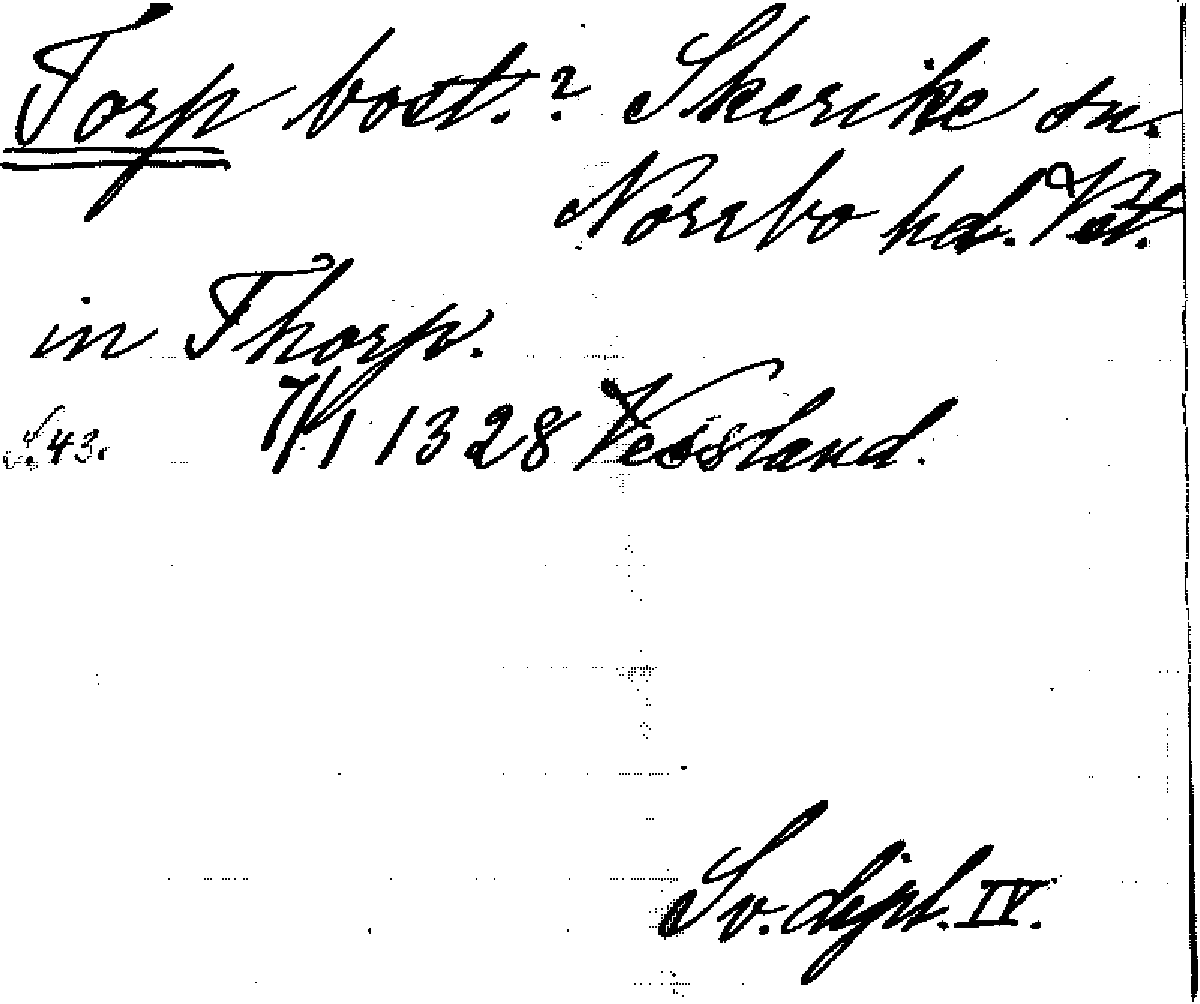 Torp bost.? Skerike sn.
Norrbo hd. Vst.
in Thorp.
S. 43. 7/1 1328 Vessland.
Sv. dipl. IV.